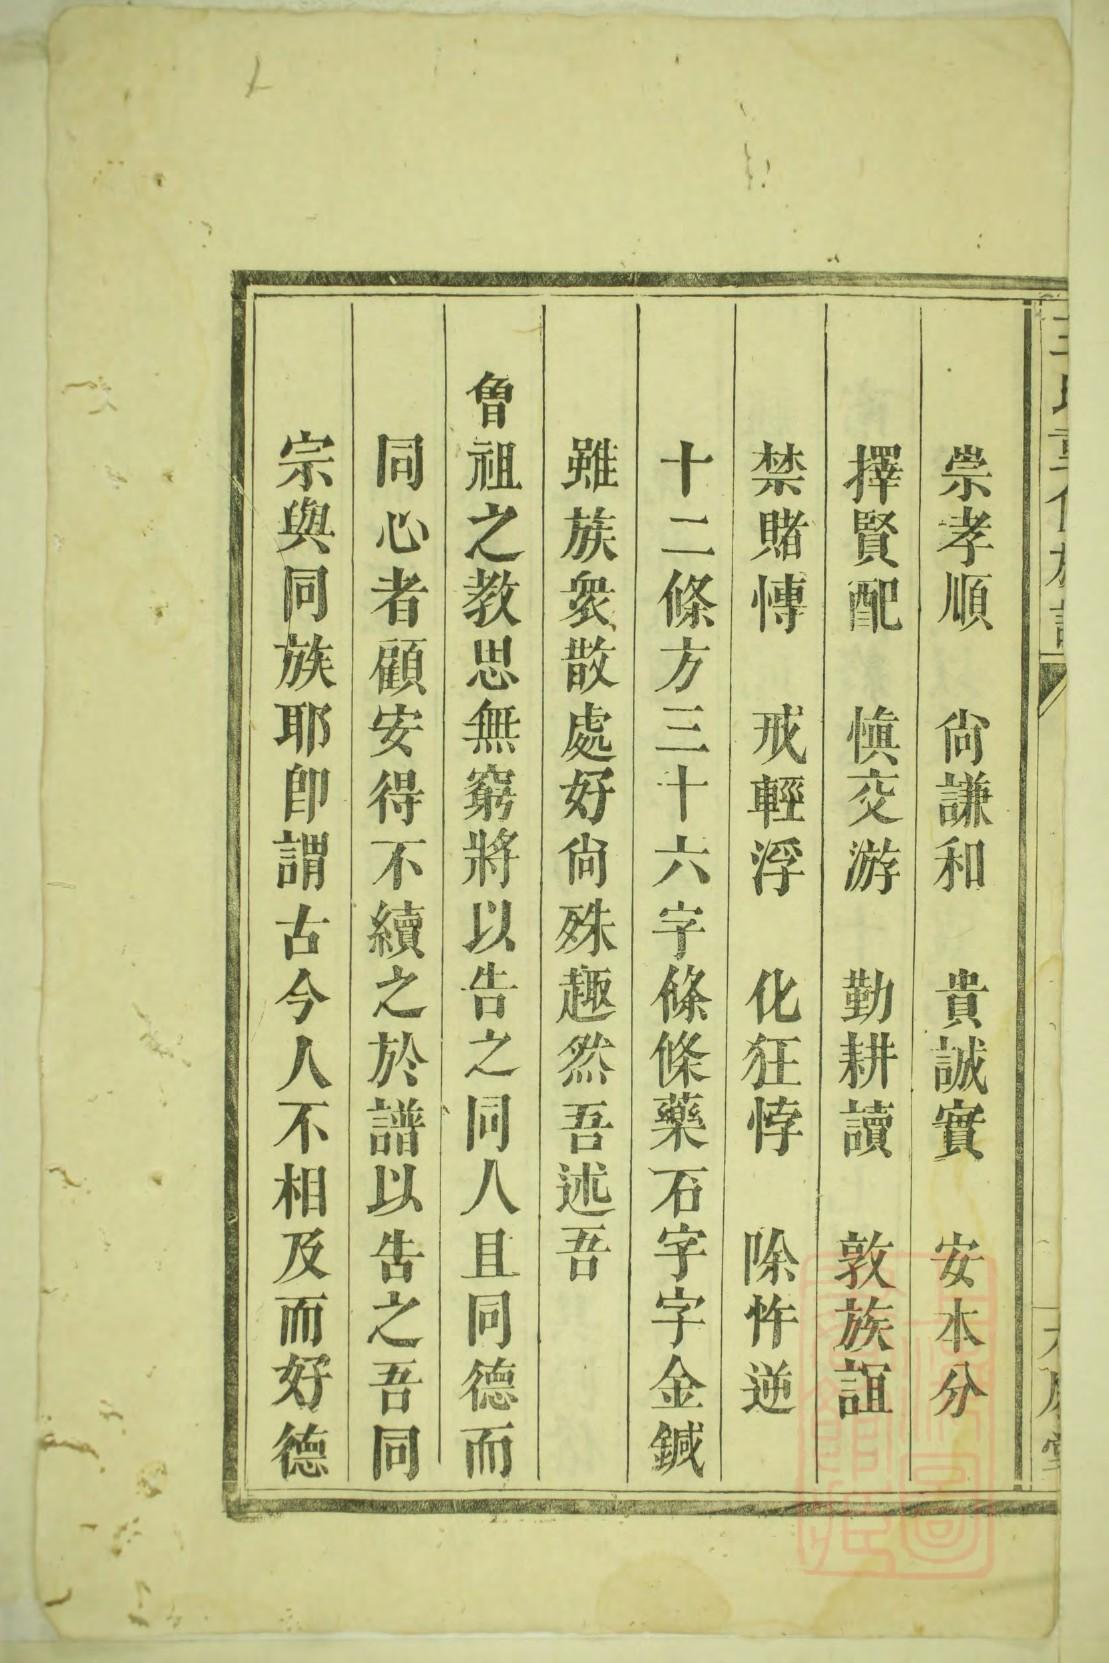 崇孝順　尙謙和　貴誠實　安本分
擇賢配　愼交游　勤耕讀　敦族誼
禁賭慱　戒輕浮　化狂悖　除忤逆
十二條方三十六字條條藥石字字金鍼
雖族衆散處好尙殊趣然吾述吾
魯祖之教思無窮將以告之同人且同德而
同心者顧安得不續之於譜以告之吾同
宗與同族耶卽謂古今人不相及而好德